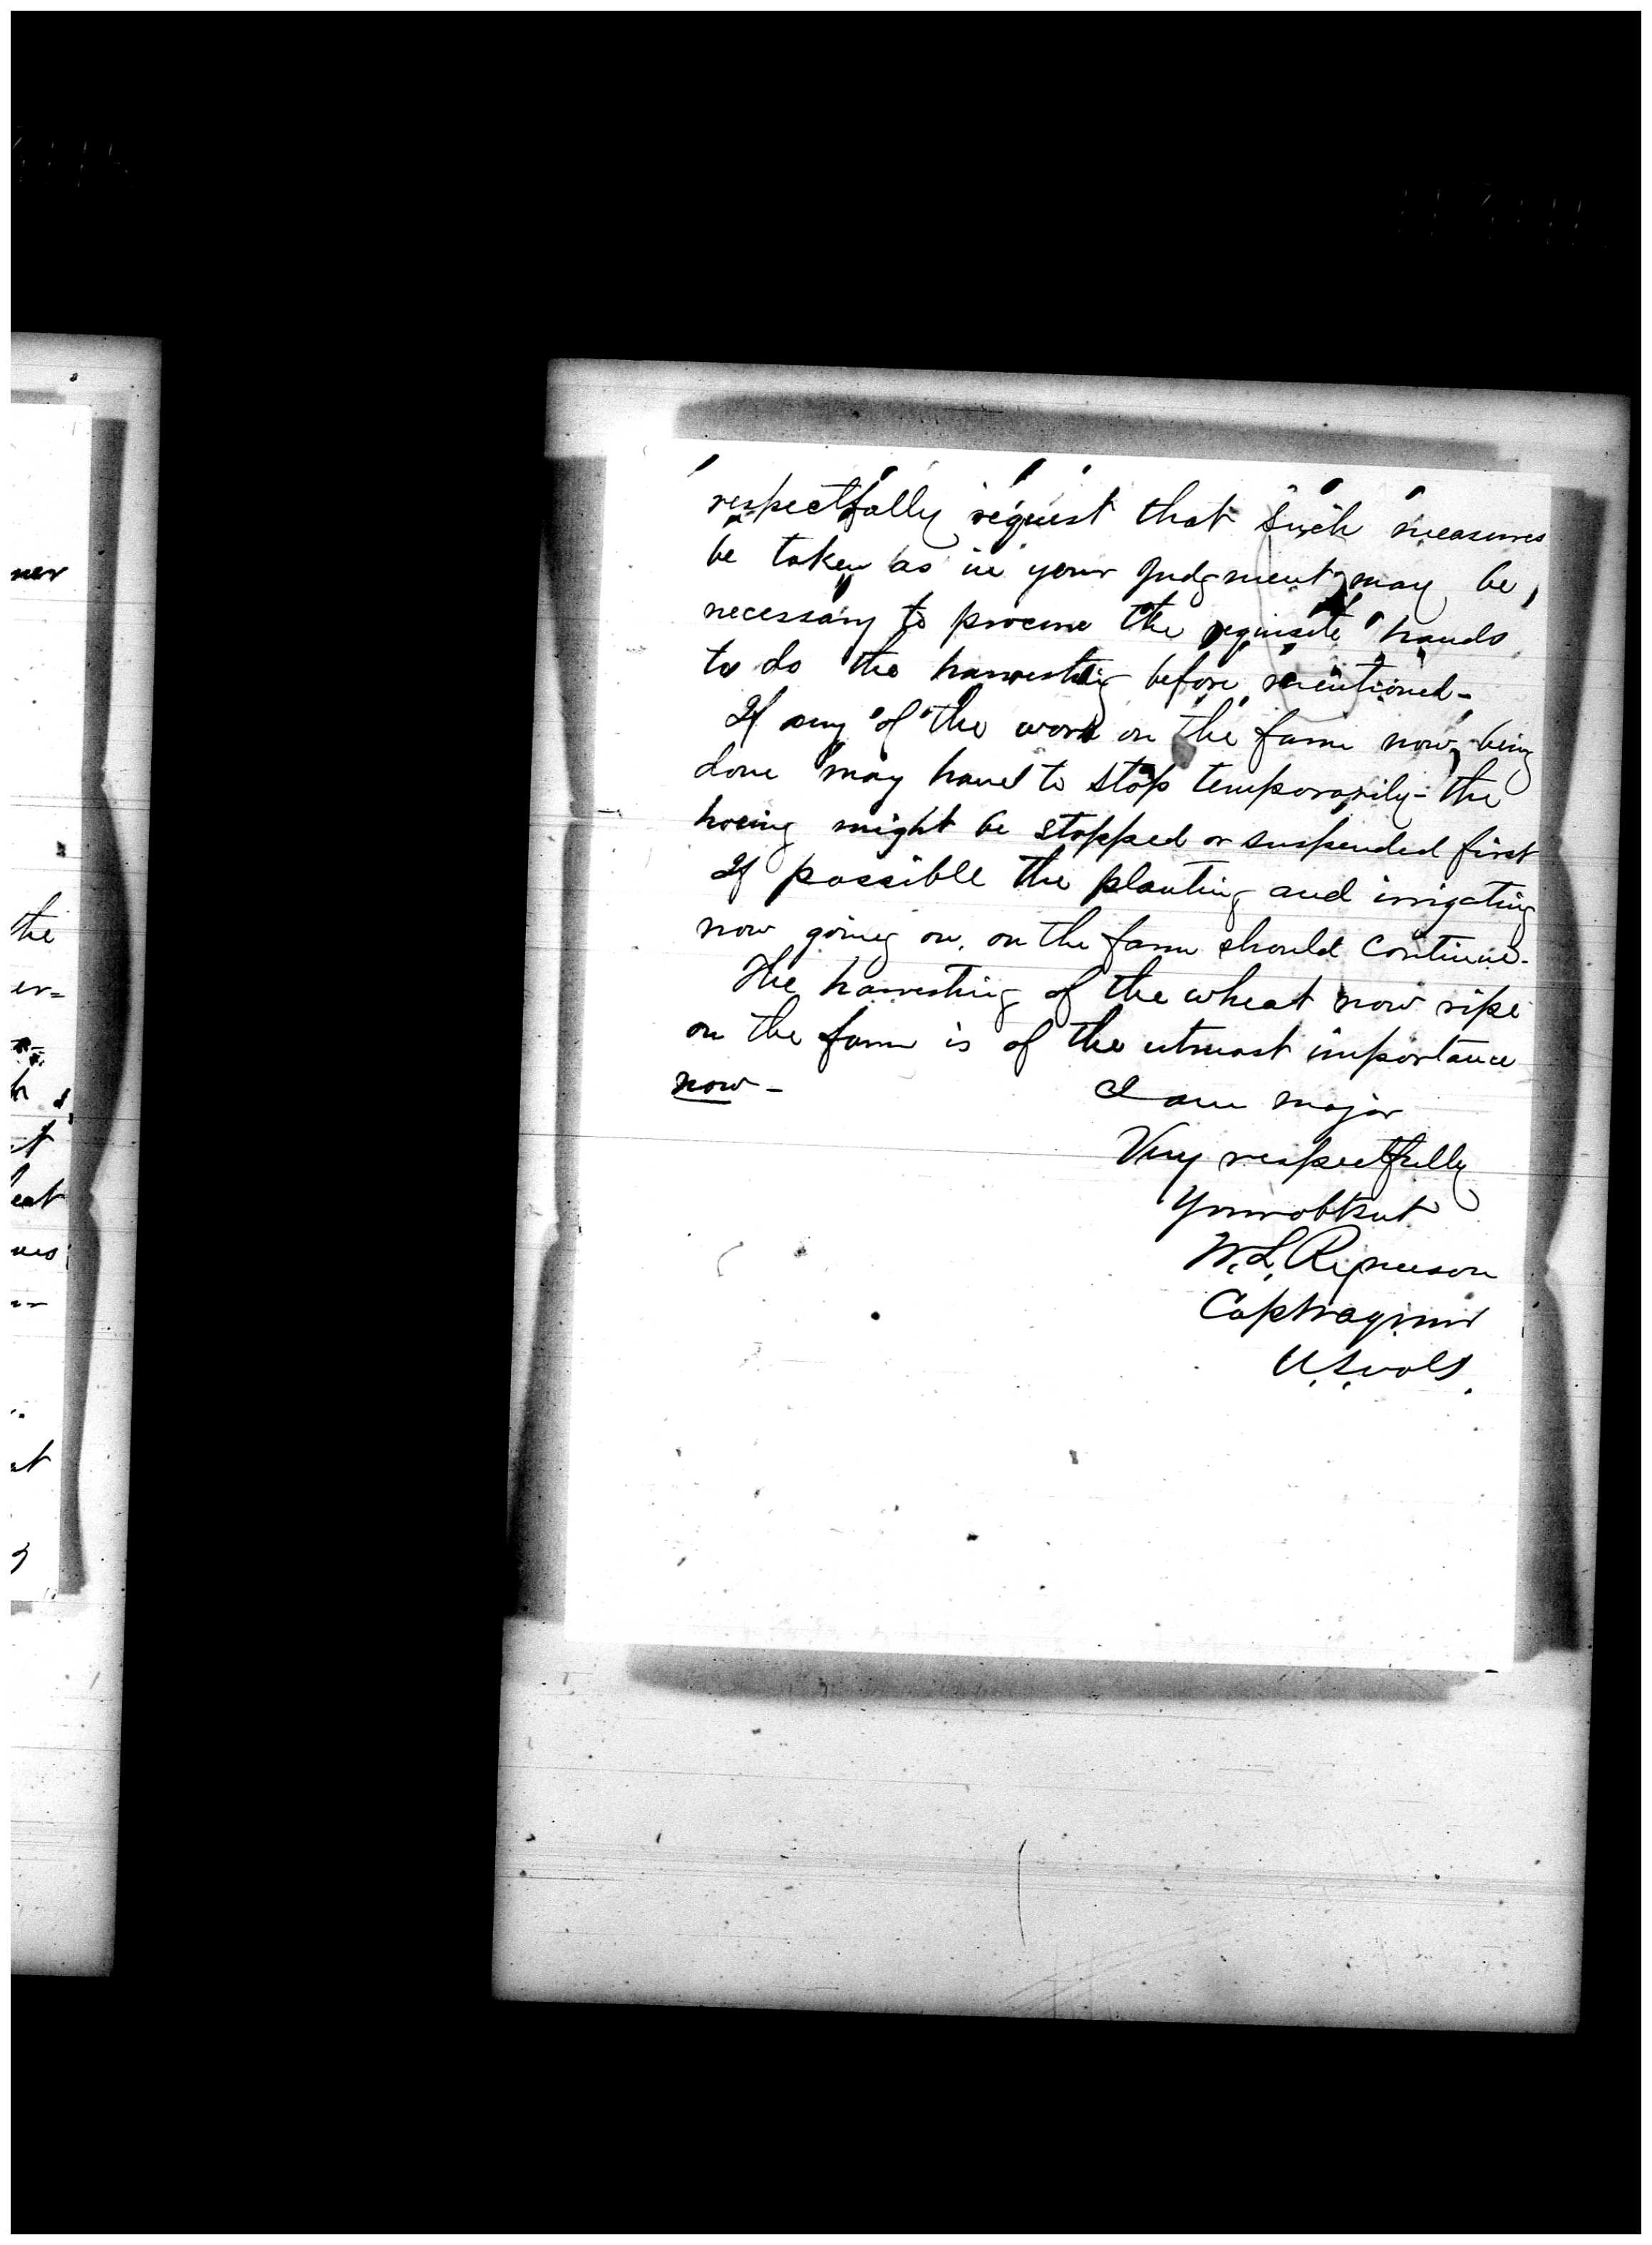 respectfully request that such measures
be taken as in your judgment may be
necessary to procure the requisite hands
to do the harvesting before mentioned-
If any of the work on the farm now being
done may have to stop temporarily- the
hoeing might be stopped or suspended first
If possible the planting and irrigating
now going on, on the farm should continue-
The harvesting of the wheat now ripe
on the farm is of the utmost importance
now-
I am major
Very respectfully
Your obt svt
W. L. Rynerson
Capt
U.S. vols.
ner
the
er=
eat